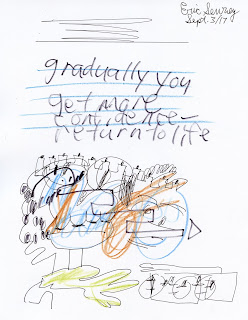 Eric Sewrey
Sept. 3/17
gradually you
get more
confidence –
return to life